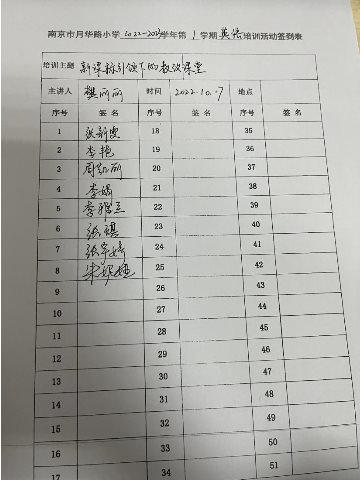 南京市月华路小学2022-2023学年第1学期英语培训活动签到表
培训主题 新课标引领下的教效课堂
主讲人 樊丽丽 时间 2022.10.7 地点
序号 签名 序号 签名 序号 签名
1 张新雯 18 35
2 李艳 19 36
3 周凯丽 20 37
4 李婧 21 38
5 李 22 39
6 张琪 23 40
7 张宇婷 24 41
8 朱妮娅 25 42
9 26 43
10 27 44
11 28 45
12 29 46
13 30 47
14 31 48
15 32 49
16 33 50
17 34 51